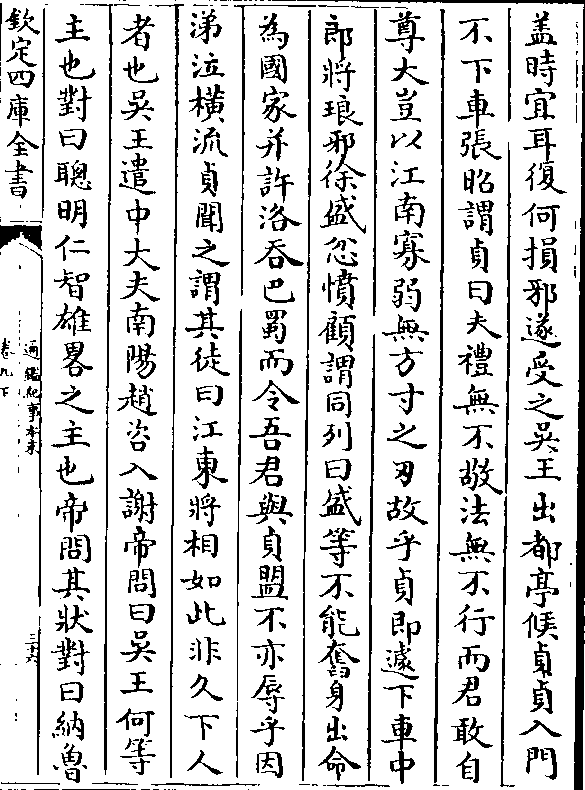 盖時宜耳復何損邪遂受之吳王出都亭候貞貞入門
不下車張昭謂貞曰夫禮無不敬法無不行而君敢自
尊大豈以江南寡弱無方寸之刃故乎貞即遽下車中
郎將琅邪徐盛忿憤顧謂同列曰盛等不能奮身出命
為國家并許洛吞巴蜀而令吾君與貞盟不亦辱乎因
涕泣横流貞聞之謂其徒曰江東將相如此非久下人
者也吳王遣中大夫南陽趙咨入謝帝問曰吳王何等
主也對曰聰明仁智雄畧之主也帝問其狀對曰納魯
欽定四庫全書
通鑑紀事本末
卷九下
三六